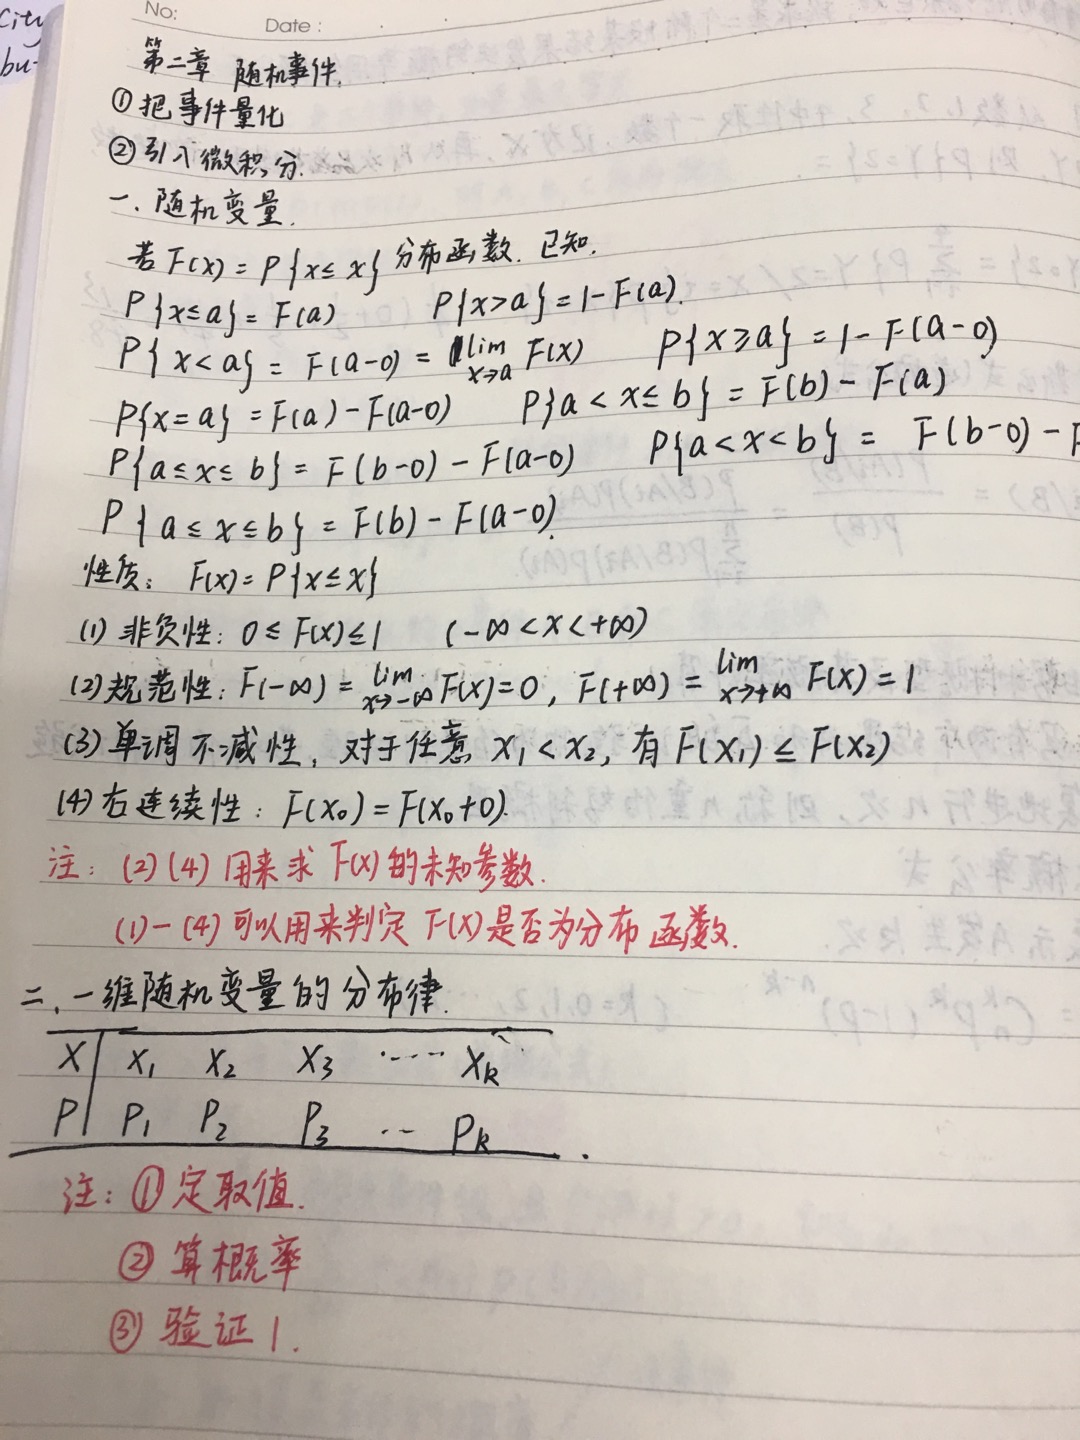 City
bu-
No:
Date :
第二章 随机事件.
① 把事件量化
② 引入微积分.
一. 随机变量.
若 F(x) = P{x≤x} 分布函数. 已知.
P{x≤a} = F(a) P{x>a} = 1-F(a).
P{x<a} = F(a-0) = lim x→a F(x) P{x≥a} = 1-F(a-0)
P{x=a} = F(a)-F(a-0) P{a<x≤b} = F(b)-F(a)
P{a≤x≤b} = F(b-0)-F(a-0) P{a<x<b} = F(b-0)-F
P{a≤x≤b} = F(b)-F(a-0).
性质: F(x)=P{x≤x}
(1) 非负性: 0≤F(x)≤1 (-∞<x<+∞)
(2) 规范性: F(-∞) = lim x→-∞ F(x)=0, F(+∞) = lim x→+∞ F(x) = 1
(3) 单调不减性, 对于任意 x₁<x₂, 有 F(x₁)≤F(x₂)
(4) 右连续性: F(x₀)=F(x₀+0).
注: (2)(4) 用来求 F(x)的未知参数.
(1)-(4) 可以用来判定 F(x)是否为分布函数.
二. 一维随机变量的分布律.
X x₁ x₂ x₃ ····· x_k
P P₁ P₂ P₃ ·· P_k
注: ① 定取值.
② 算概率
③ 验证1.